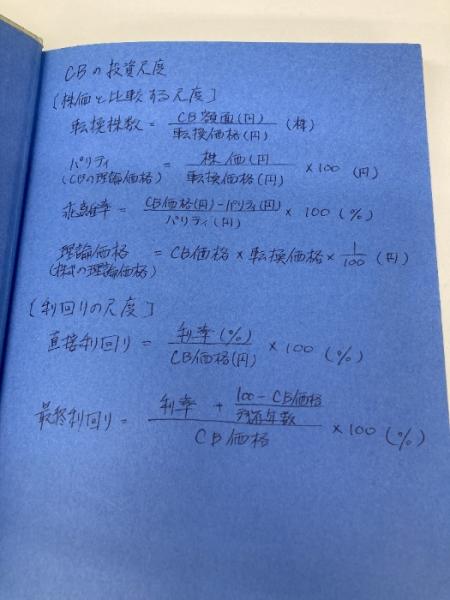 CBの投資尺度
[株価と比較する尺度]
転換株数 = CB額面(円) / 転換価格(円) (株)
パリティ (CBの理論価格) = 株価(円 / 転換価格(円) × 100 (円)
乖離率 = CB価格(円) - パリティ(円) / パリティ(円) × 100 (%)
理論価格 (株式の理論価格) = CB価格 × 転換価格 × 1/100 (円)
[利回りの尺度]
直接利回り = 利率(%) / CB価格(円) × 100 (%)
最終利回り = 利率 + 100 - CB価格 / 残存年数 / CB価格 × 100 (%)